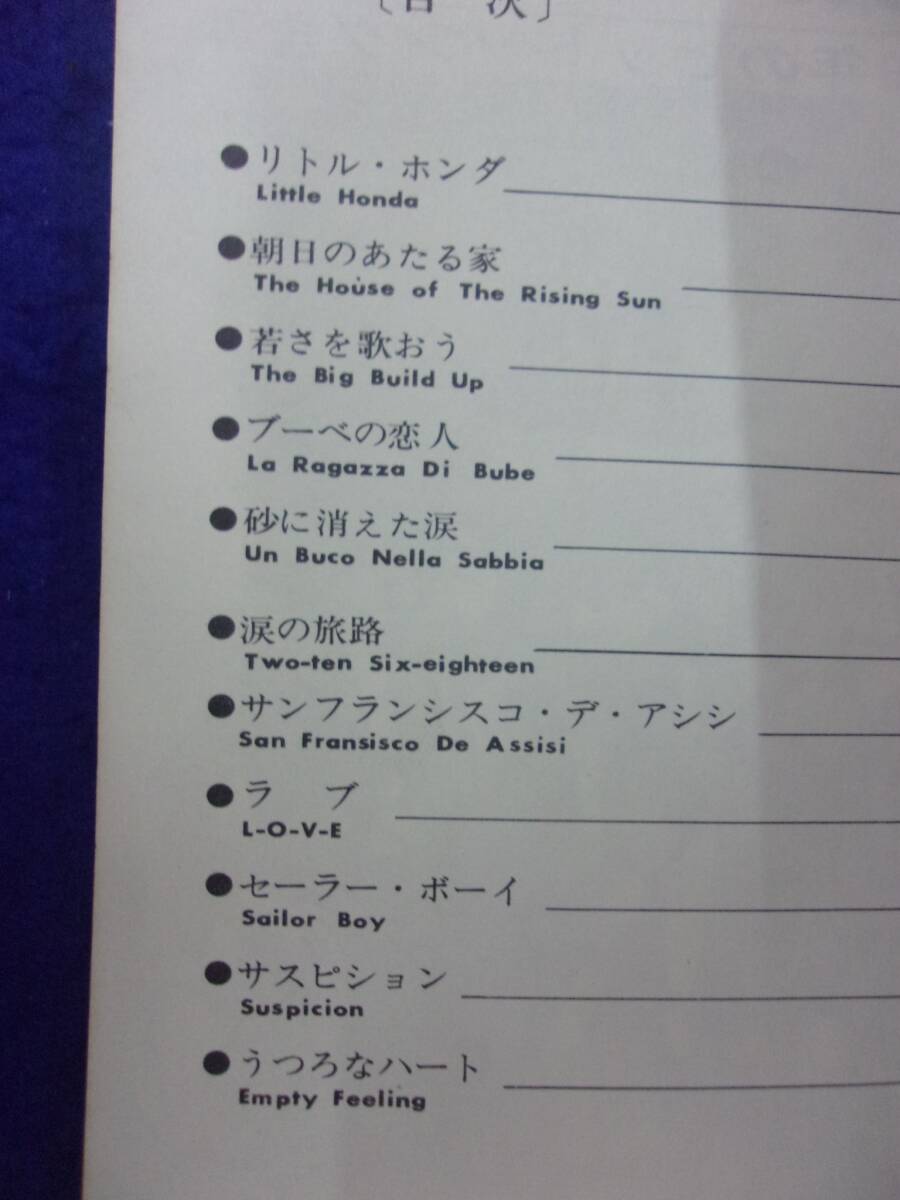 〔目 次〕
●リトル・ホンダ
Little Honda
●朝日のあたる家
The House of The Rising Sun
●若さを歌おう
The Big Build Up
●ブーベの恋人
La Ragazza Di Bube
●砂に消えた涙
Un Buco Nella Sabbia
●涙の旅路
Two-ten Six-eighteen
●サンフランシスコ・デ・アシシ
San Fransisco De Assisi
●ラ ブ
L-O-V-E
●セーラー・ボーイ
Sailor Boy
●サスピション
Suspicion
●うつろなハート
Empty Feeling